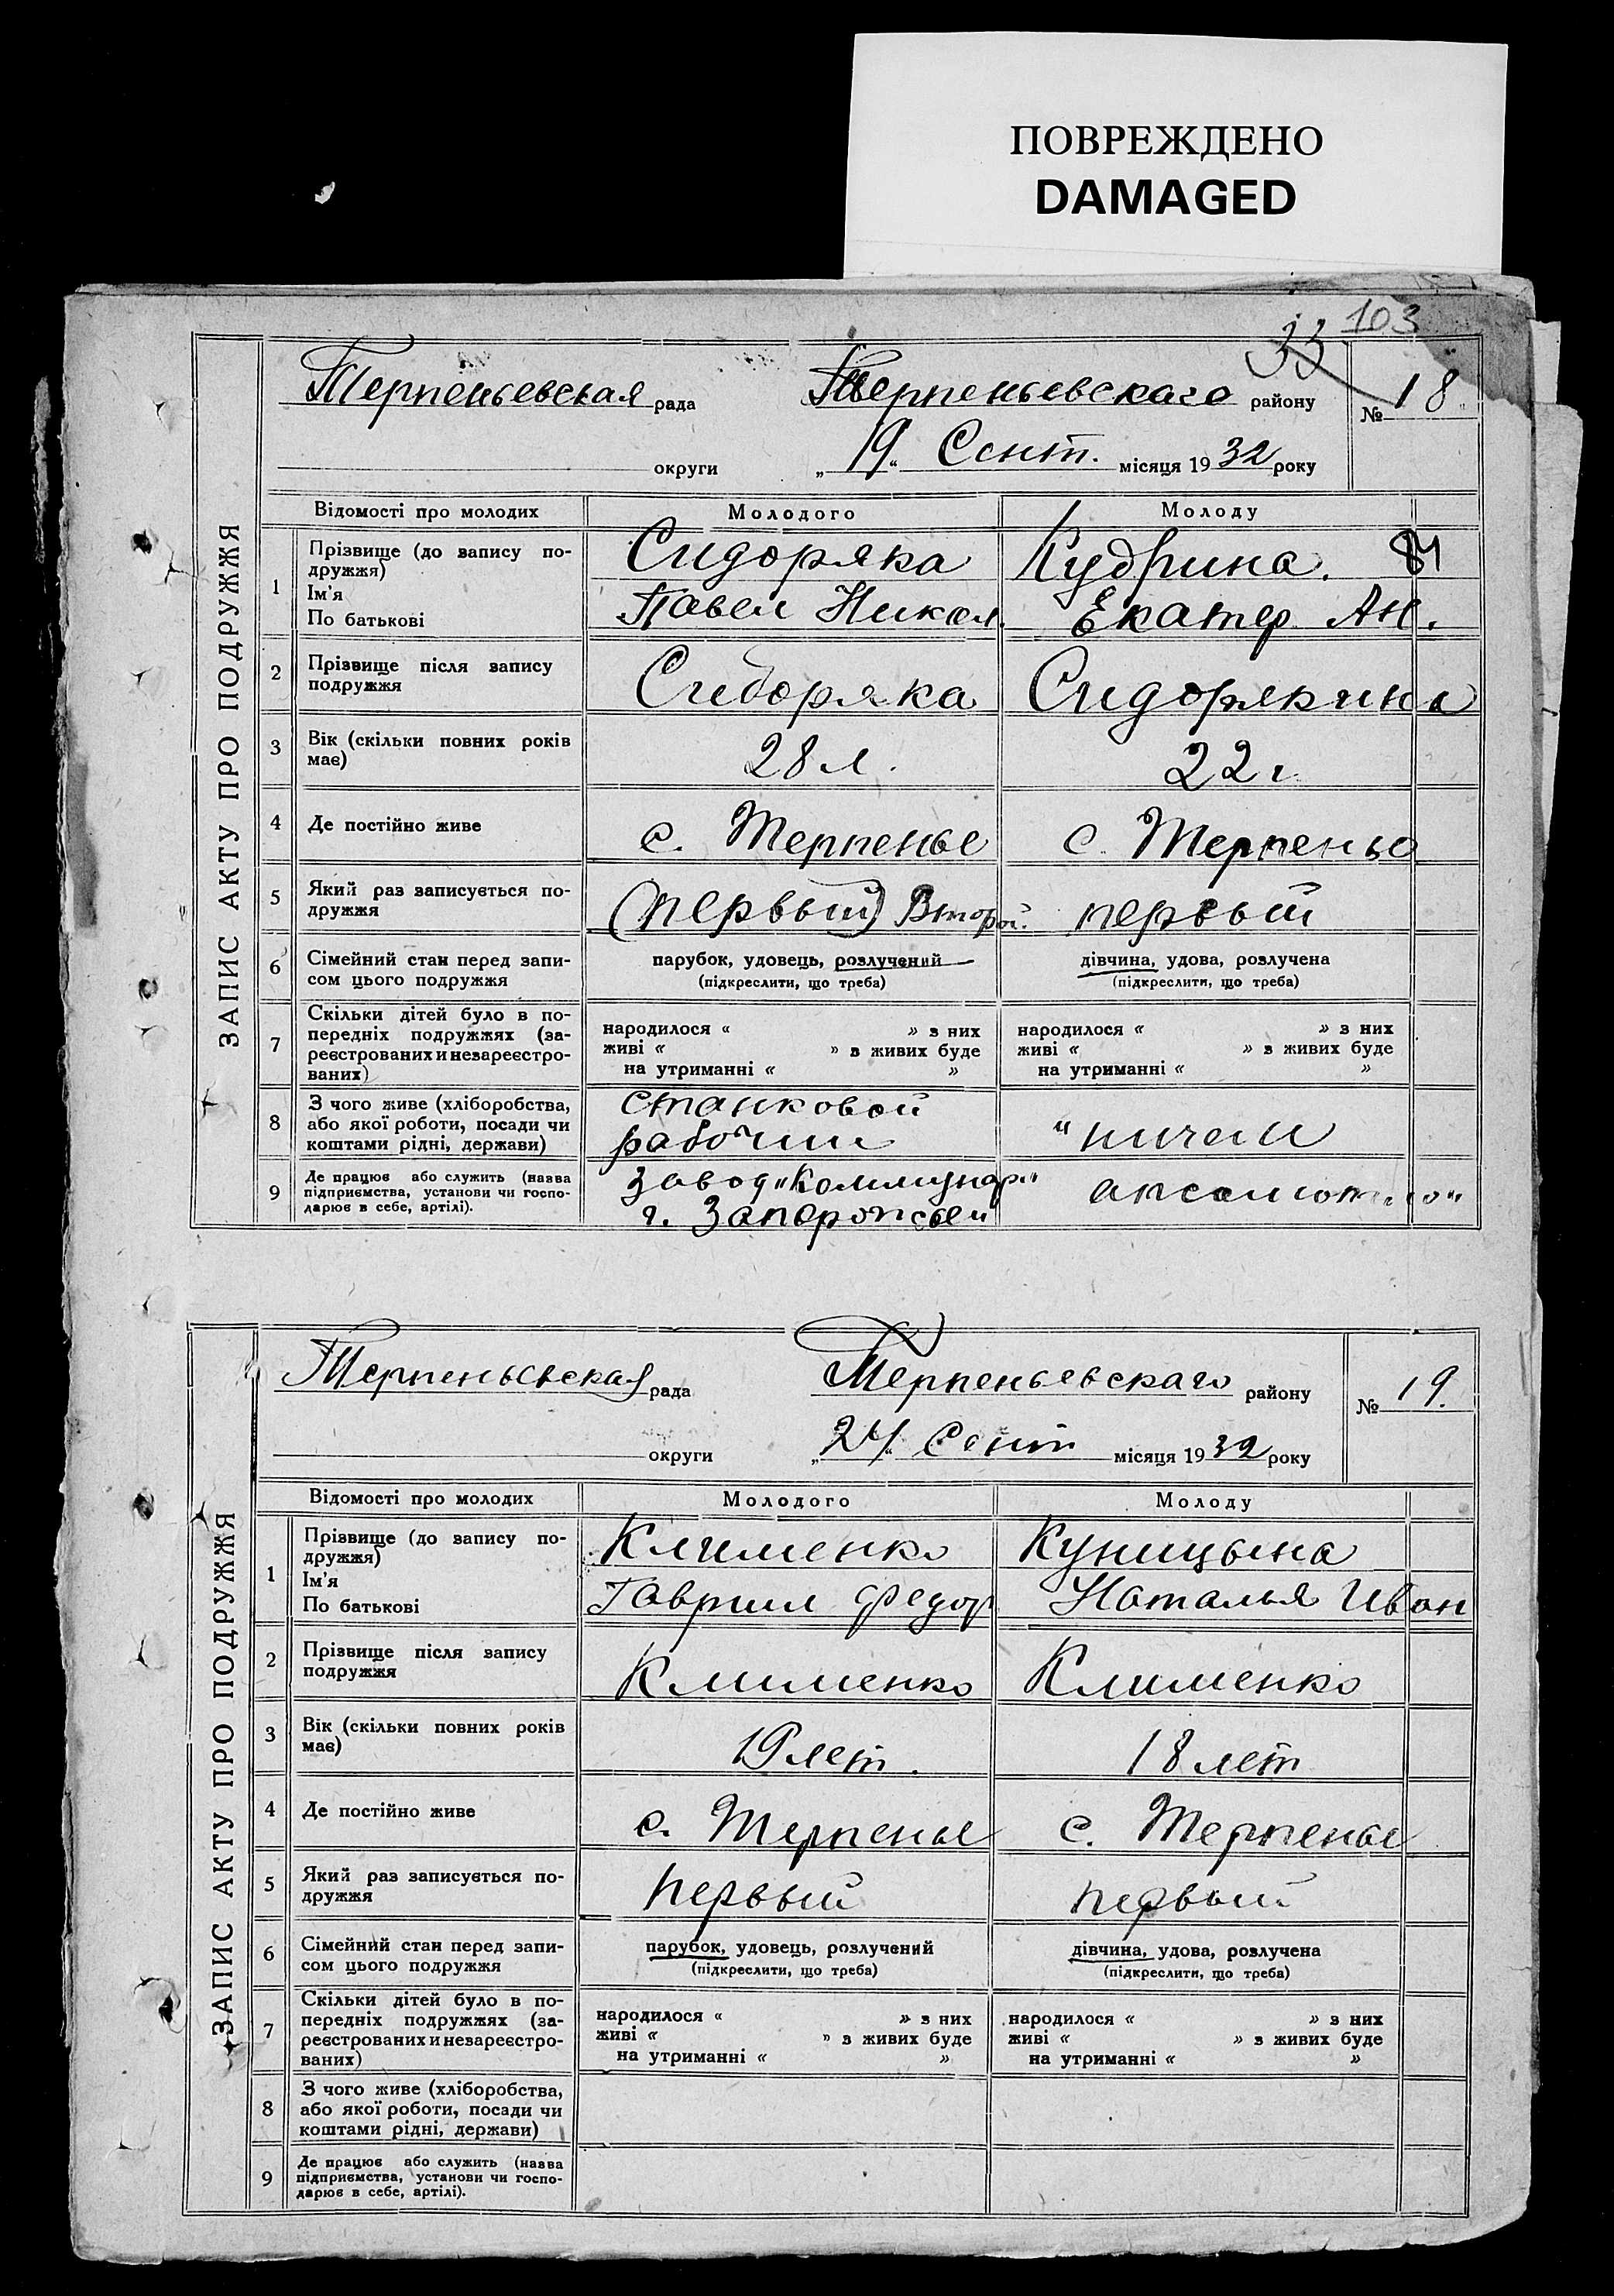 ПОВРЕЖДЕНО
DAMAGED
103
33
Терпеньевская рада Терпеньевскаго району № 18
округи „19“ Сент. місяця 1932 року
ЗАПИС АКТУ ПРО ПОДРУЖЖЯ
Відомості про молодих Молодого Молоду
1 Прізвище (до запису по-
дружжя)
Ім'я
По батькові
Сидоряка Кудрина.
Павел Никол. Екатер Ан.
2 Прізвище після запису
подружжя
Сидоряка Сидорякина
3 Вік (скільки повних років
має)
28 л. 22 г.
4 Де постійно живе с. Терпенье с. Терпенье
5 Який раз записується по-
дружжя
(первый) Второй. первый
6 Сімейний стан перед запи-
сом цього подружжя
парубок, удовець, розлучений дівчина, удова, розлучена
(підкреслити, що треба) (підкреслити, що треба)
7 Скільки дітей було в по-
передніх подружжях (за-
реєстрованих и незареєстро-
ваних)
народилося « » з них народилося « » з них
живі « » з живих буде живі « » з живих буде
на утриманні « » на утриманні « »
8 З чого живе (хліборобства,
або якої роботи, посади чи
коштами рідні, держави)
станковой
рабочий "ничем
9 Де працює або служить (назва
підприємства, установи чи госпо-
дарює в себе, артілі).
завод „Коммунар“
г. Запорожье"
Терпеньевская рада Терпеньевскаго району № 19.
округи „24“ Сент місяця 1932 року
ЗАПИС АКТУ ПРО ПОДРУЖЖЯ
Відомості про молодих Молодого Молоду
1 Прізвище (до запису по-
дружжя)
Ім'я
По батькові
Клименко Куницына
Гаврил Федор Наталья Иван
2 Прізвище після запису
подружжя
Клименко Клименко
3 Вік (скільки повних років
має)
19 лет. 18 лет
4 Де постійно живе с. Терпенье с. Терпенье
5 Який раз записується по-
дружжя
первый первый
6 Сімейний стан перед запи-
сом цього подружжя
парубок, удовець, розлучений дівчина, удова, розлучена
(підкреслити, що треба) (підкреслити, що треба)
7 Скільки дітей було в по-
передніх подружжях (за-
реєстрованих и незареєстро-
ваних)
народилося « » з них народилося « » з них
живі « » з живих буде живі « » з живих буде
на утриманні « » на утриманні « »
8 З чого живе (хліборобства,
або якої роботи, посади чи
коштами рідні, держави)
9 Де працює або служить (назва
підприємства, установи чи госпо-
дарює в себе, артілі).